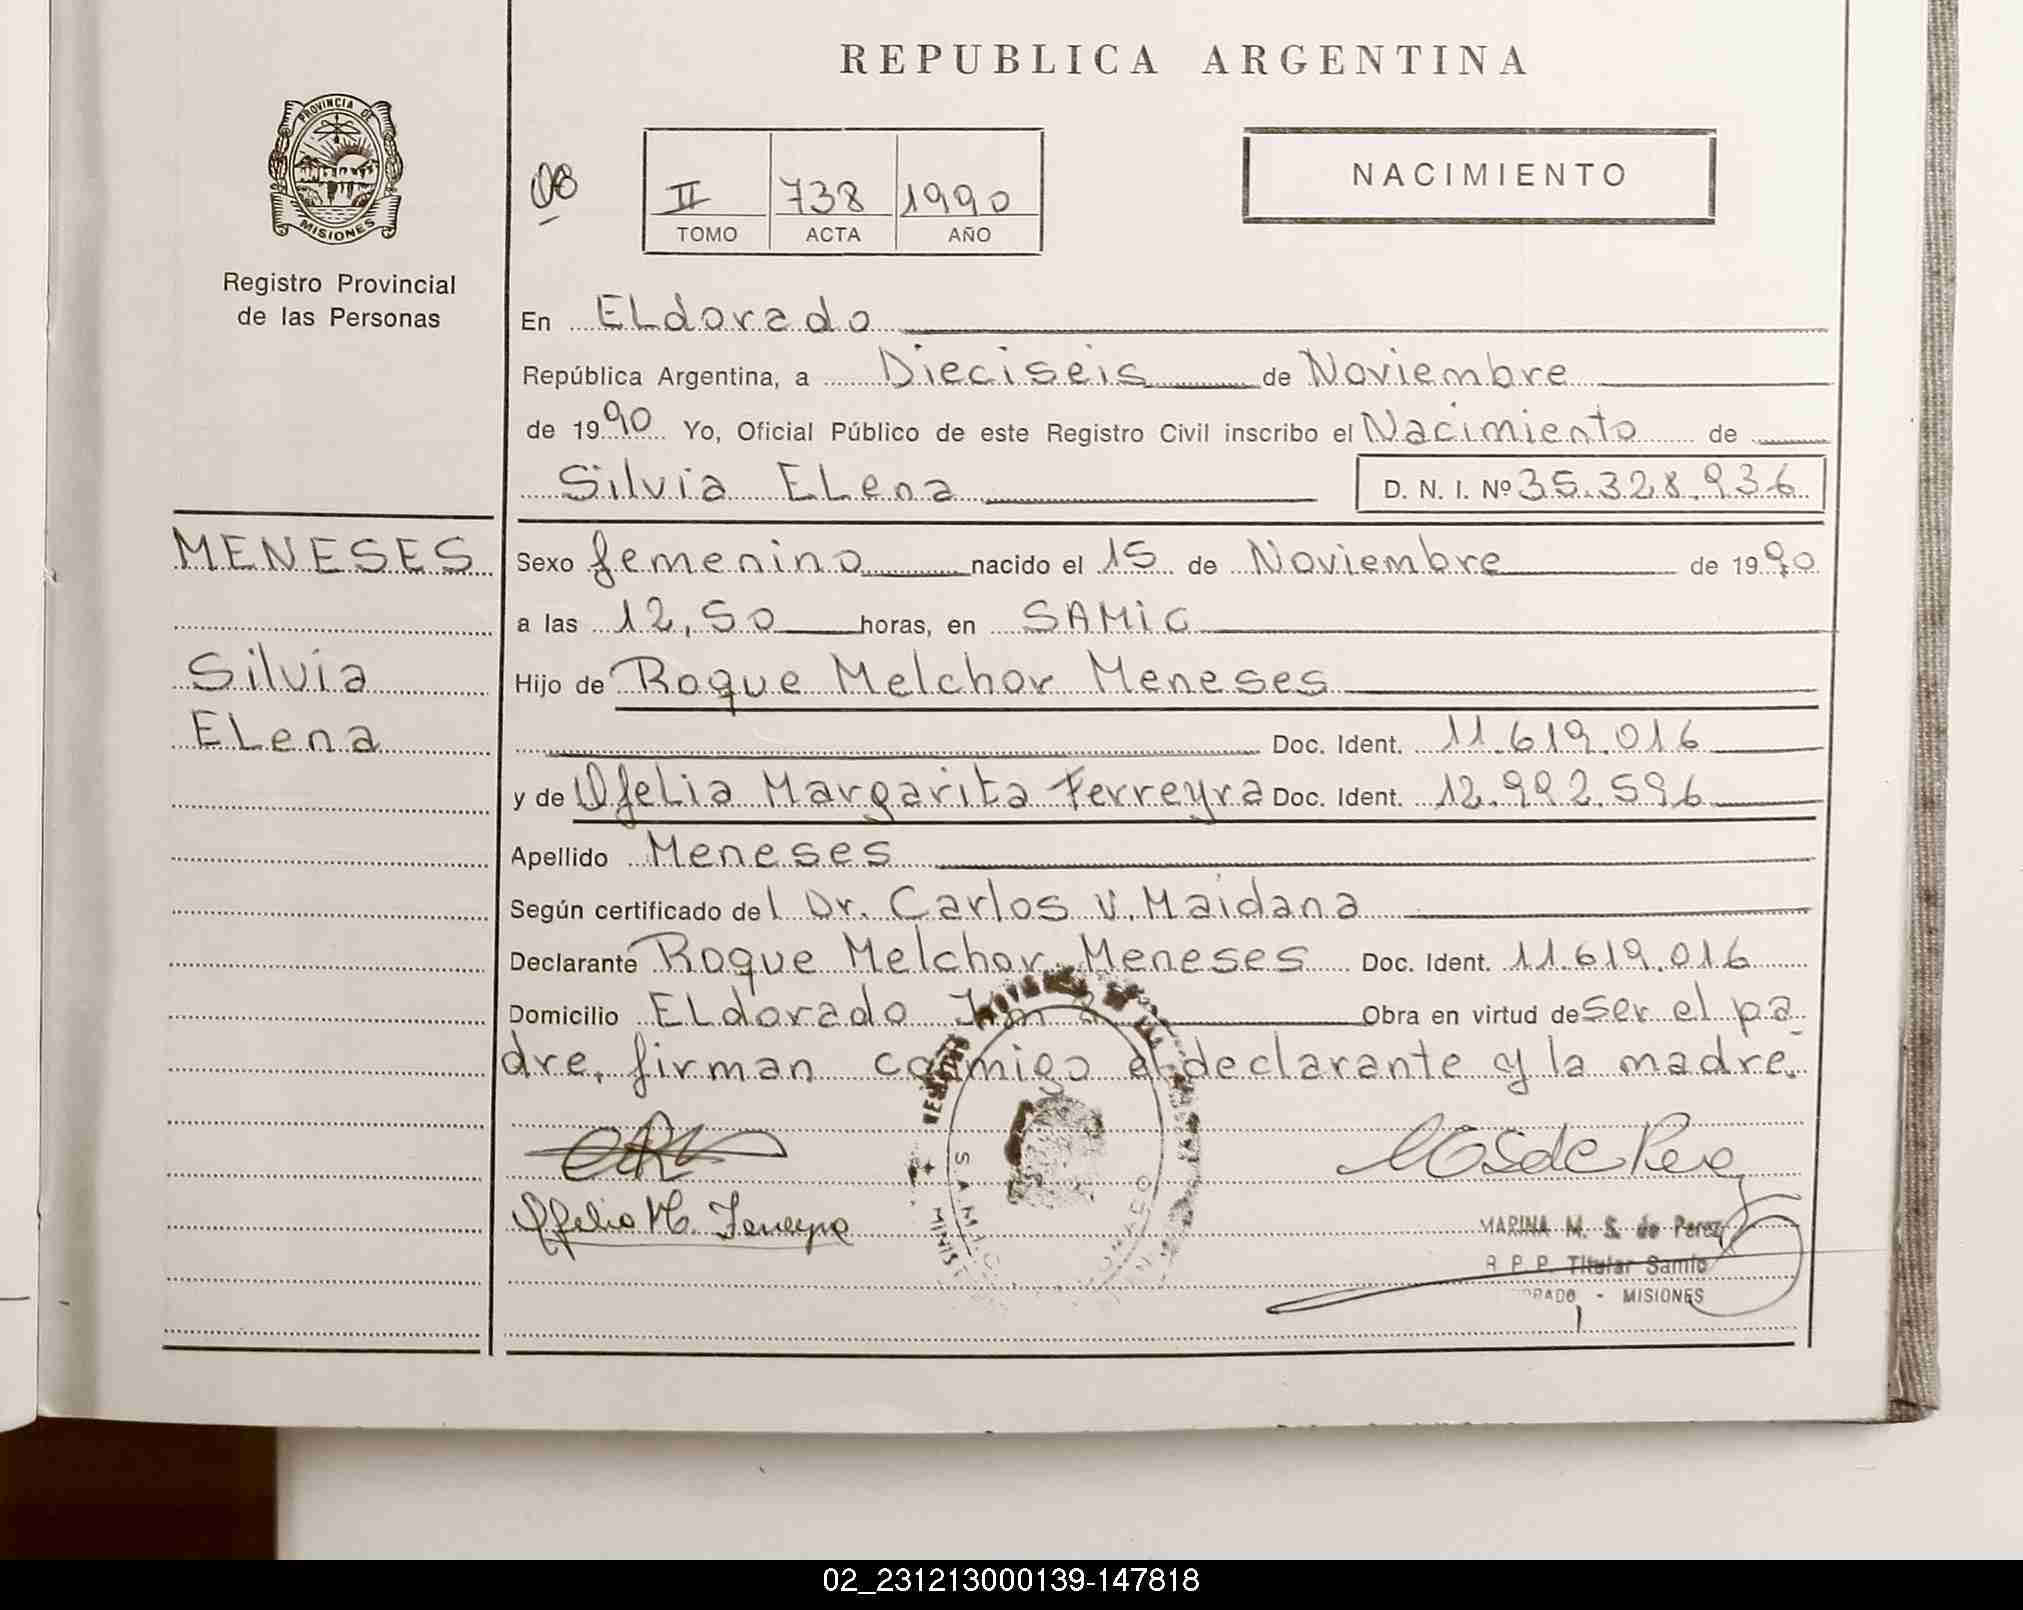 REPUBLICA ARGENTINA
PROVINCIA DE
MISIONES
Registro Provincial
de las Personas
08
II 738 1990
TOMO ACTA AÑO
NACIMIENTO
En ELdorado
República Argentina, a Dieciseis de Noviembre
de 1990 Yo, Oficial Público de este Registro Civil inscribo el Nacimiento de
Silvia ELena D. N. I. Nº 35.328.936
MENESES
Silvia
ELena
Sexo femenino nacido el 15 de Noviembre de 1990
a las 12,50 horas, en SAMIC
Hijo de Roque Melchor Meneses
Doc. Ident. 11.619.016
y de OfeLia Margarita Ferreyra Doc. Ident. 12.992.596
Apellido Meneses
Según certificado del Dr. Carlos V. Maidana
Declarante Roque Melchor Meneses Doc. Ident. 11.619.016
Domicilio ELdorado Obra en virtud de ser el pa-
dre, firman conmigo el declarante y la madre.
S.A.M.I.C.
MINIS
Ofelia M. Ferreyra
MARINA M. S. de Perez
R. P. P. Titular Samic
- MISIONES
02_231213000139-147818